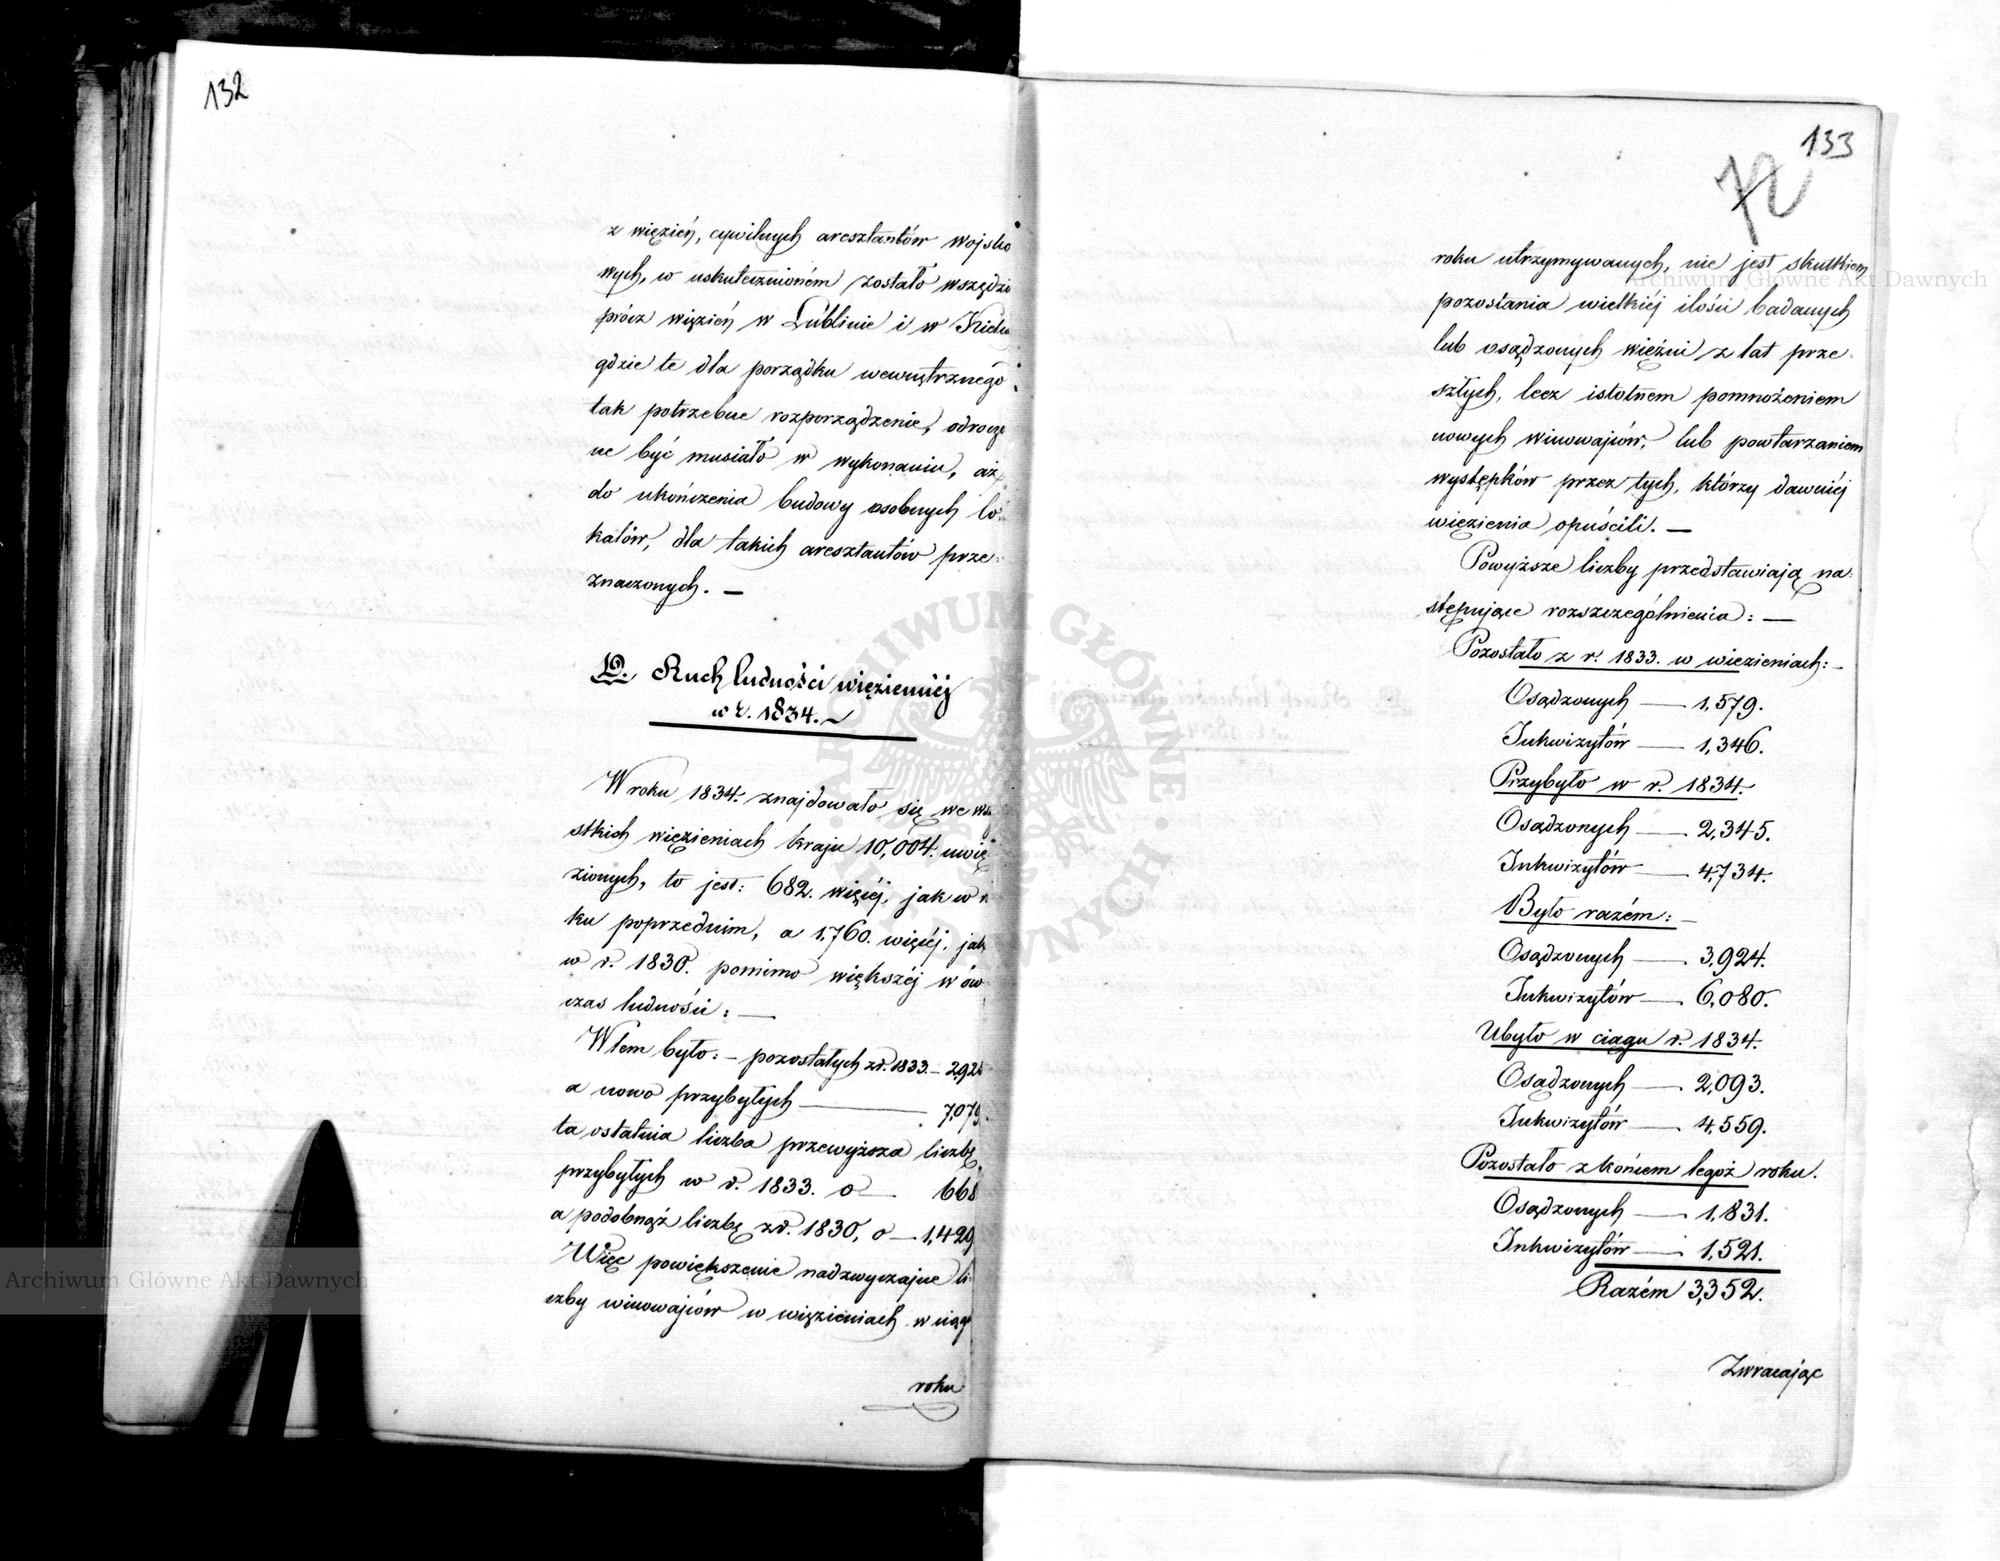 132
z więzień, cywilnych aresztantów wojsko
wych, w uskutecznioném zostało wszędzie
prócz więzień w Lublinie i w Kielc
gdzie te dla porządku wewnętrznego
tak potrzebne rozporządzenie, odrocze
ne być musiało w wykonaniu, aż
do ukończenia budowy osobnych lo-
kalów, dla takich aresztantów prze-
znaczonych. —
D. Ruch ludności więziennéj
w r. 1834.
W roku 1834. znajdowało się we wsz
stkich więzieniach kraju 10,004. uwię
zionych, to jest: 682. więcéj, jak w r
ku poprzednim, a 1,760. więcéj, jak
w r. 1830. pomimo większéj w ów
czas ludności: —
W tem było: – pozostałych z r. 1833. – 2,925
a nowo przybyłych — 7,079.
ta ostatnia liczba przewyższa liczbę
przybyłych w r. 1833. o — 668
a podobnąż liczbę z r. 1830, o — 1,429
Więc powiększenie nadzwyczajne li-
czby winowajców w więzieniach w ciągu
roku
133
72
roku utrzymywanych, nie jest skutkiem
pozostania wielkiéj ilości badanych
lub osądzonych więźni z lat prze-
szłych, lecz istotnem pomnożeniem
nowych winowajców, lub powtarzaniem
występków przez tych, którzy dawniéj
więzienia opuścili. —
Powyższe liczby przedstawiają na-
stępujące rozszczególnienia: —
Pozostało z r. 1833. w więzieniach: –
Osądzonych — 1,579.
Inkwizytów — 1,346.
Przybyło w r. 1834.
Osądzonych — 2,345.
Inkwizytów — 4,734.
Było razém: –
Osądzonych — 3,924.
Inkwizytów — 6,080.
Ubyło w ciągu r. 1834.
Osądzonych — 2,093.
Inkwizytów — 4,559.
Pozostało z końcem tegoż roku.
Osądzonych — 1,831.
Inkwizytów — 1,521.
Razém 3,352.
Zwracając
Archiwum Główne Akt Dawnych
Archiwum Główne Akt Dawnych
ARCHIWUM GŁÓWNE AKT DAWNYCH